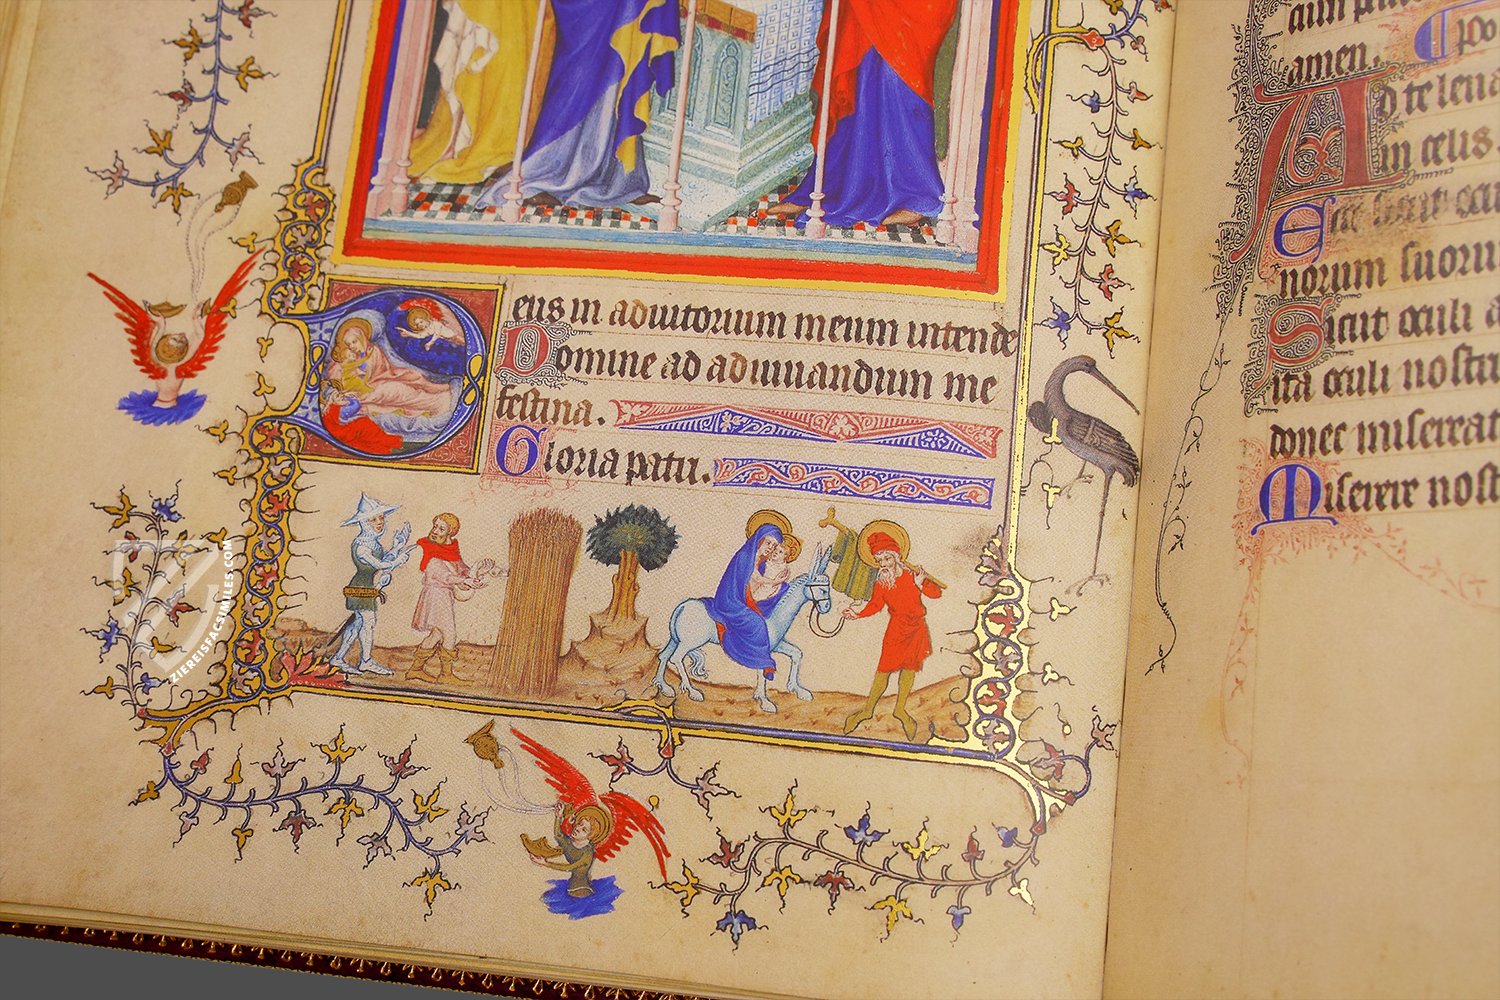 eus in adiutorium meum intende
Domine ad adiuuandum me
festina.
Gloria patri.
amen.
Ad te leua
in celis.
Ecce sicut
norum suorum
Sicut oculi a
ita oculi nostri
donec misereat
Miserere nost
ZIEREISFACSIMILES.COM